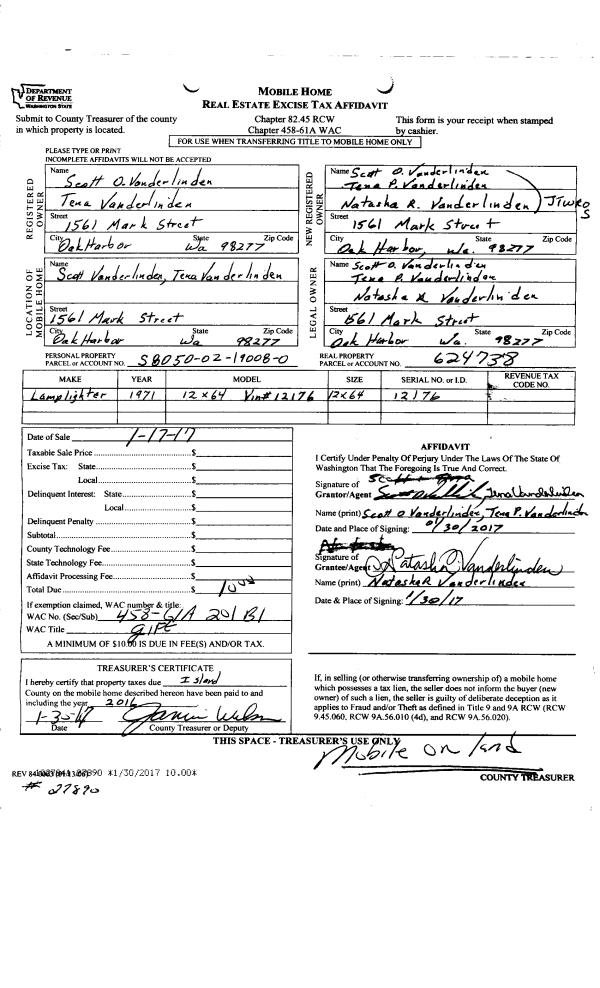 DEPARTMENT
OF REVENUE
WASHINGTON STATE
MOBILE HOME
REAL ESTATE EXCISE TAX AFFIDAVIT
Submit to County Treasurer of the county
in which property is located.
Chapter 82.45 RCW
Chapter 458-61A WAC
This form is your receipt when stamped
by cashier.
FOR USE WHEN TRANSFERRING TITLE TO MOBILE HOME ONLY
PLEASE TYPE OR PRINT
INCOMPLETE AFFIDAVITS WILL NOT BE ACCEPTED
REGISTERED
OWNER
Name
Scott O. Vanderlinden
Tena Vanderlinden
Street
1561 Mark Street
City State Zip Code
Oak Harbor Wa 98277
NEW REGISTERED
OWNER
Name Scott O. Vanderlinden
Tena P. Vanderlinden
Natasha R. Vanderlinden JTWROS
Street
1561 Mark Street
City State Zip Code
Oak Harbor, Wa. 98277
LOCATION OF
MOBILE HOME
Name
Scott Vanderlinden, Tena Vanderlinden
Street
1561 Mark Street
City State Zip Code
Oak Harbor Wa 98277
LEGAL OWNER
Name Scott O. Vanderlinden
Tena P. Vanderlinden
Natasha R Vanderlinden
Street
1561 Mark Street
City State Zip Code
Oak Harbor Wa. 98277
PERSONAL PROPERTY
PARCEL or ACCOUNT NO. S8050-02-19008-0
REAL PROPERTY
PARCEL or ACCOUNT NO. 624738
MAKE YEAR MODEL SIZE SERIAL NO. or I.D. REVENUE TAX
CODE NO.
Lamplighter 1971 12x64 Vin# 12176 12x64 12176
Date of Sale 1-17-17
Taxable Sale Price $
Excise Tax: State $
Local $
Delinquent Interest: State $
Local $
Delinquent Penalty $
Subtotal $
County Technology Fee $
State Technology Fee $
Affidavit Processing Fee $
Total Due $ 10.00
If exemption claimed, WAC number & title:
WAC No. (Sec/Sub) 458-61A 201 B1
WAC Title Gift
A MINIMUM OF $10.00 IS DUE IN FEE(S) AND/OR TAX.
AFFIDAVIT
I Certify Under Penalty Of Perjury Under The Laws Of The State Of
Washington That The Foregoing Is True And Correct.
Signature of
Grantor/Agent Tena Vanderlinden
Name (print) Scott O Vanderlinden, Tena P. Vanderlinden
Date and Place of Signing: 01/30/2017
Signature of
Grantee/Agent Natasha R Vanderlinden
Name (print) Natasha R Vanderlinden
Date & Place of Signing: 1/30/17
TREASURER'S CERTIFICATE
I hereby certify that property taxes due Island
County on the mobile home described hereon have been paid to and
including the year 2016
1-30-17
Date County Treasurer or Deputy
If, in selling (or otherwise transferring ownership of) a mobile home
which possesses a tax lien, the seller does not inform the buyer (new
owner) of such a lien, the seller is guilty of deliberate deception as it
applies to Fraud and/or Theft as defined in Title 9 and 9A RCW (RCW
9.45.060, RCW 9A.56.010 (4d), and RCW 9A.56.020).
THIS SPACE - TREASURER'S USE ONLY
Mobile on land
REV 84 *1/30/2017 10.00*
COUNTY TREASURER
# 27890